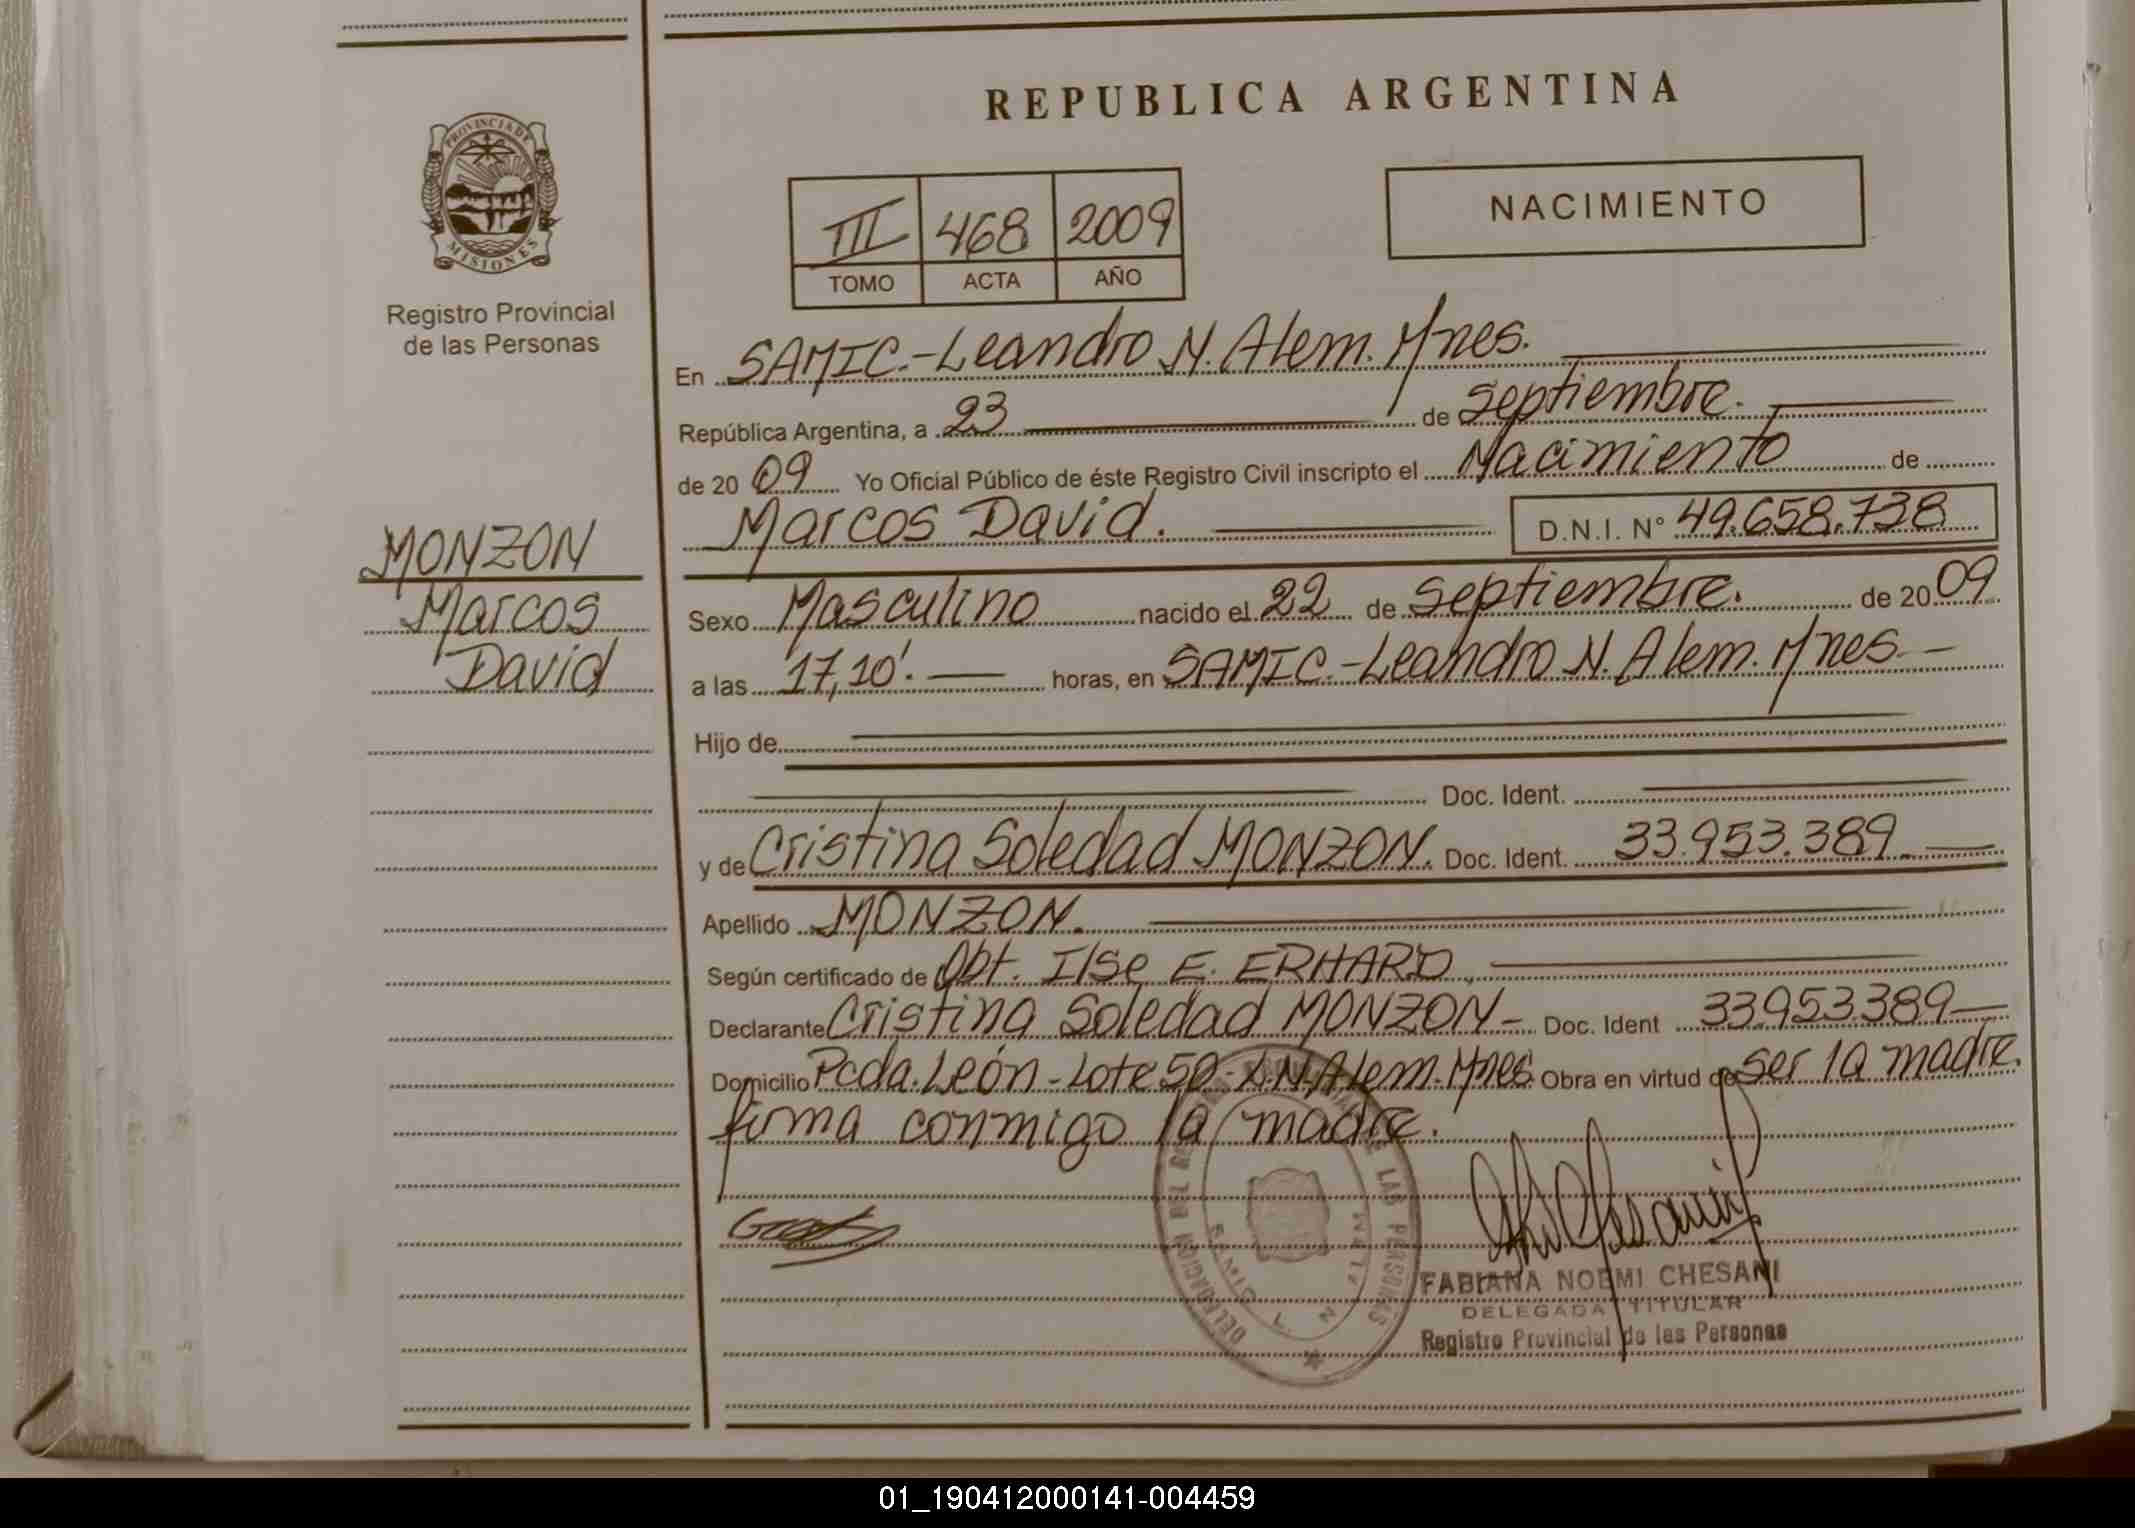 REPUBLICA ARGENTINA
PROVINCIA DE
MISIONES
Registro Provincial
de las Personas
III 468 2009
TOMO ACTA AÑO
NACIMIENTO
En SAMIC.-Leandro N. Alem. Mnes.
República Argentina, a 23 de septiembre.
de 2009 Yo Oficial Público de éste Registro Civil inscripto el Nacimiento de
Marcos David. D.N.I. N° 49.658.738
MONZON
Marcos
David
Sexo Masculino nacido el 22 de septiembre. de 2009
a las 17,10'. horas, en SAMIC.-Leandro N. Alem. Mnes.
Hijo de
Doc. Ident.
y de Cristina Soledad MONZON. Doc. Ident. 33.953.389.
Apellido MONZON.
Según certificado de Obt. Ilse E. ERHARD.
Declarante Cristina Soledad MONZON- Doc. Ident 33.953.389
Domicilio Pcda. León-Lote 50-L.N.Alem-Mnes. Obra en virtud de ser la madre.
firma conmigo la madre.
DELEGACION DEL LAS PERSONAS
FABIANA NOEMI CHESANI
DELEGADA TITULAR
Registro Provincial de las Personas
01_190412000141-004459